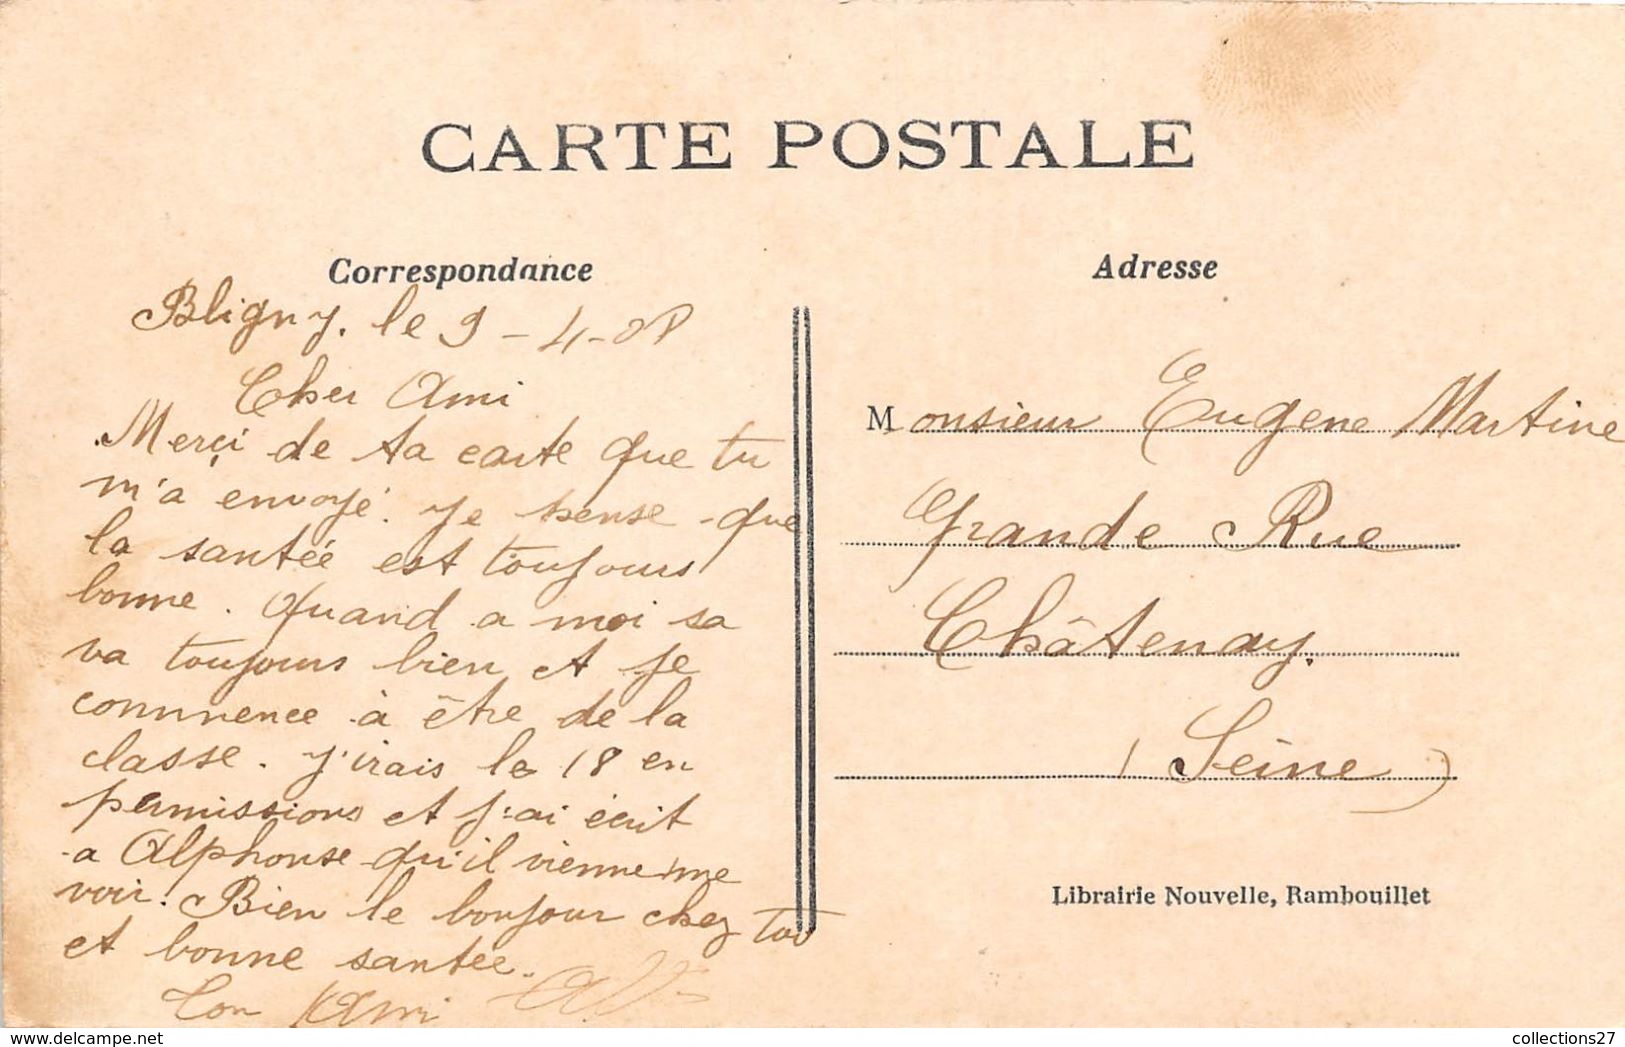 CARTE POSTALE
Correspondance
Bligny, le 9-4-08
Cher Ami
Merçi de ta carte que tu
m'a envoyé. Je pense que
la santée est toujours
bonne. Quand a moi sa
va toujours bien et je
commence à être de la
classe. J'irais le 18 en
permissions et j'ai écrit
a Alphonse qu'il vienne me
voir. Bien le bonjour chez toi
et bonne santée.
Ton Ami
Adresse
Monsieur Eugene Martine
Grande Rue
Châtenay.
(Seine)
Librairie Nouvelle, Rambouillet
collections27